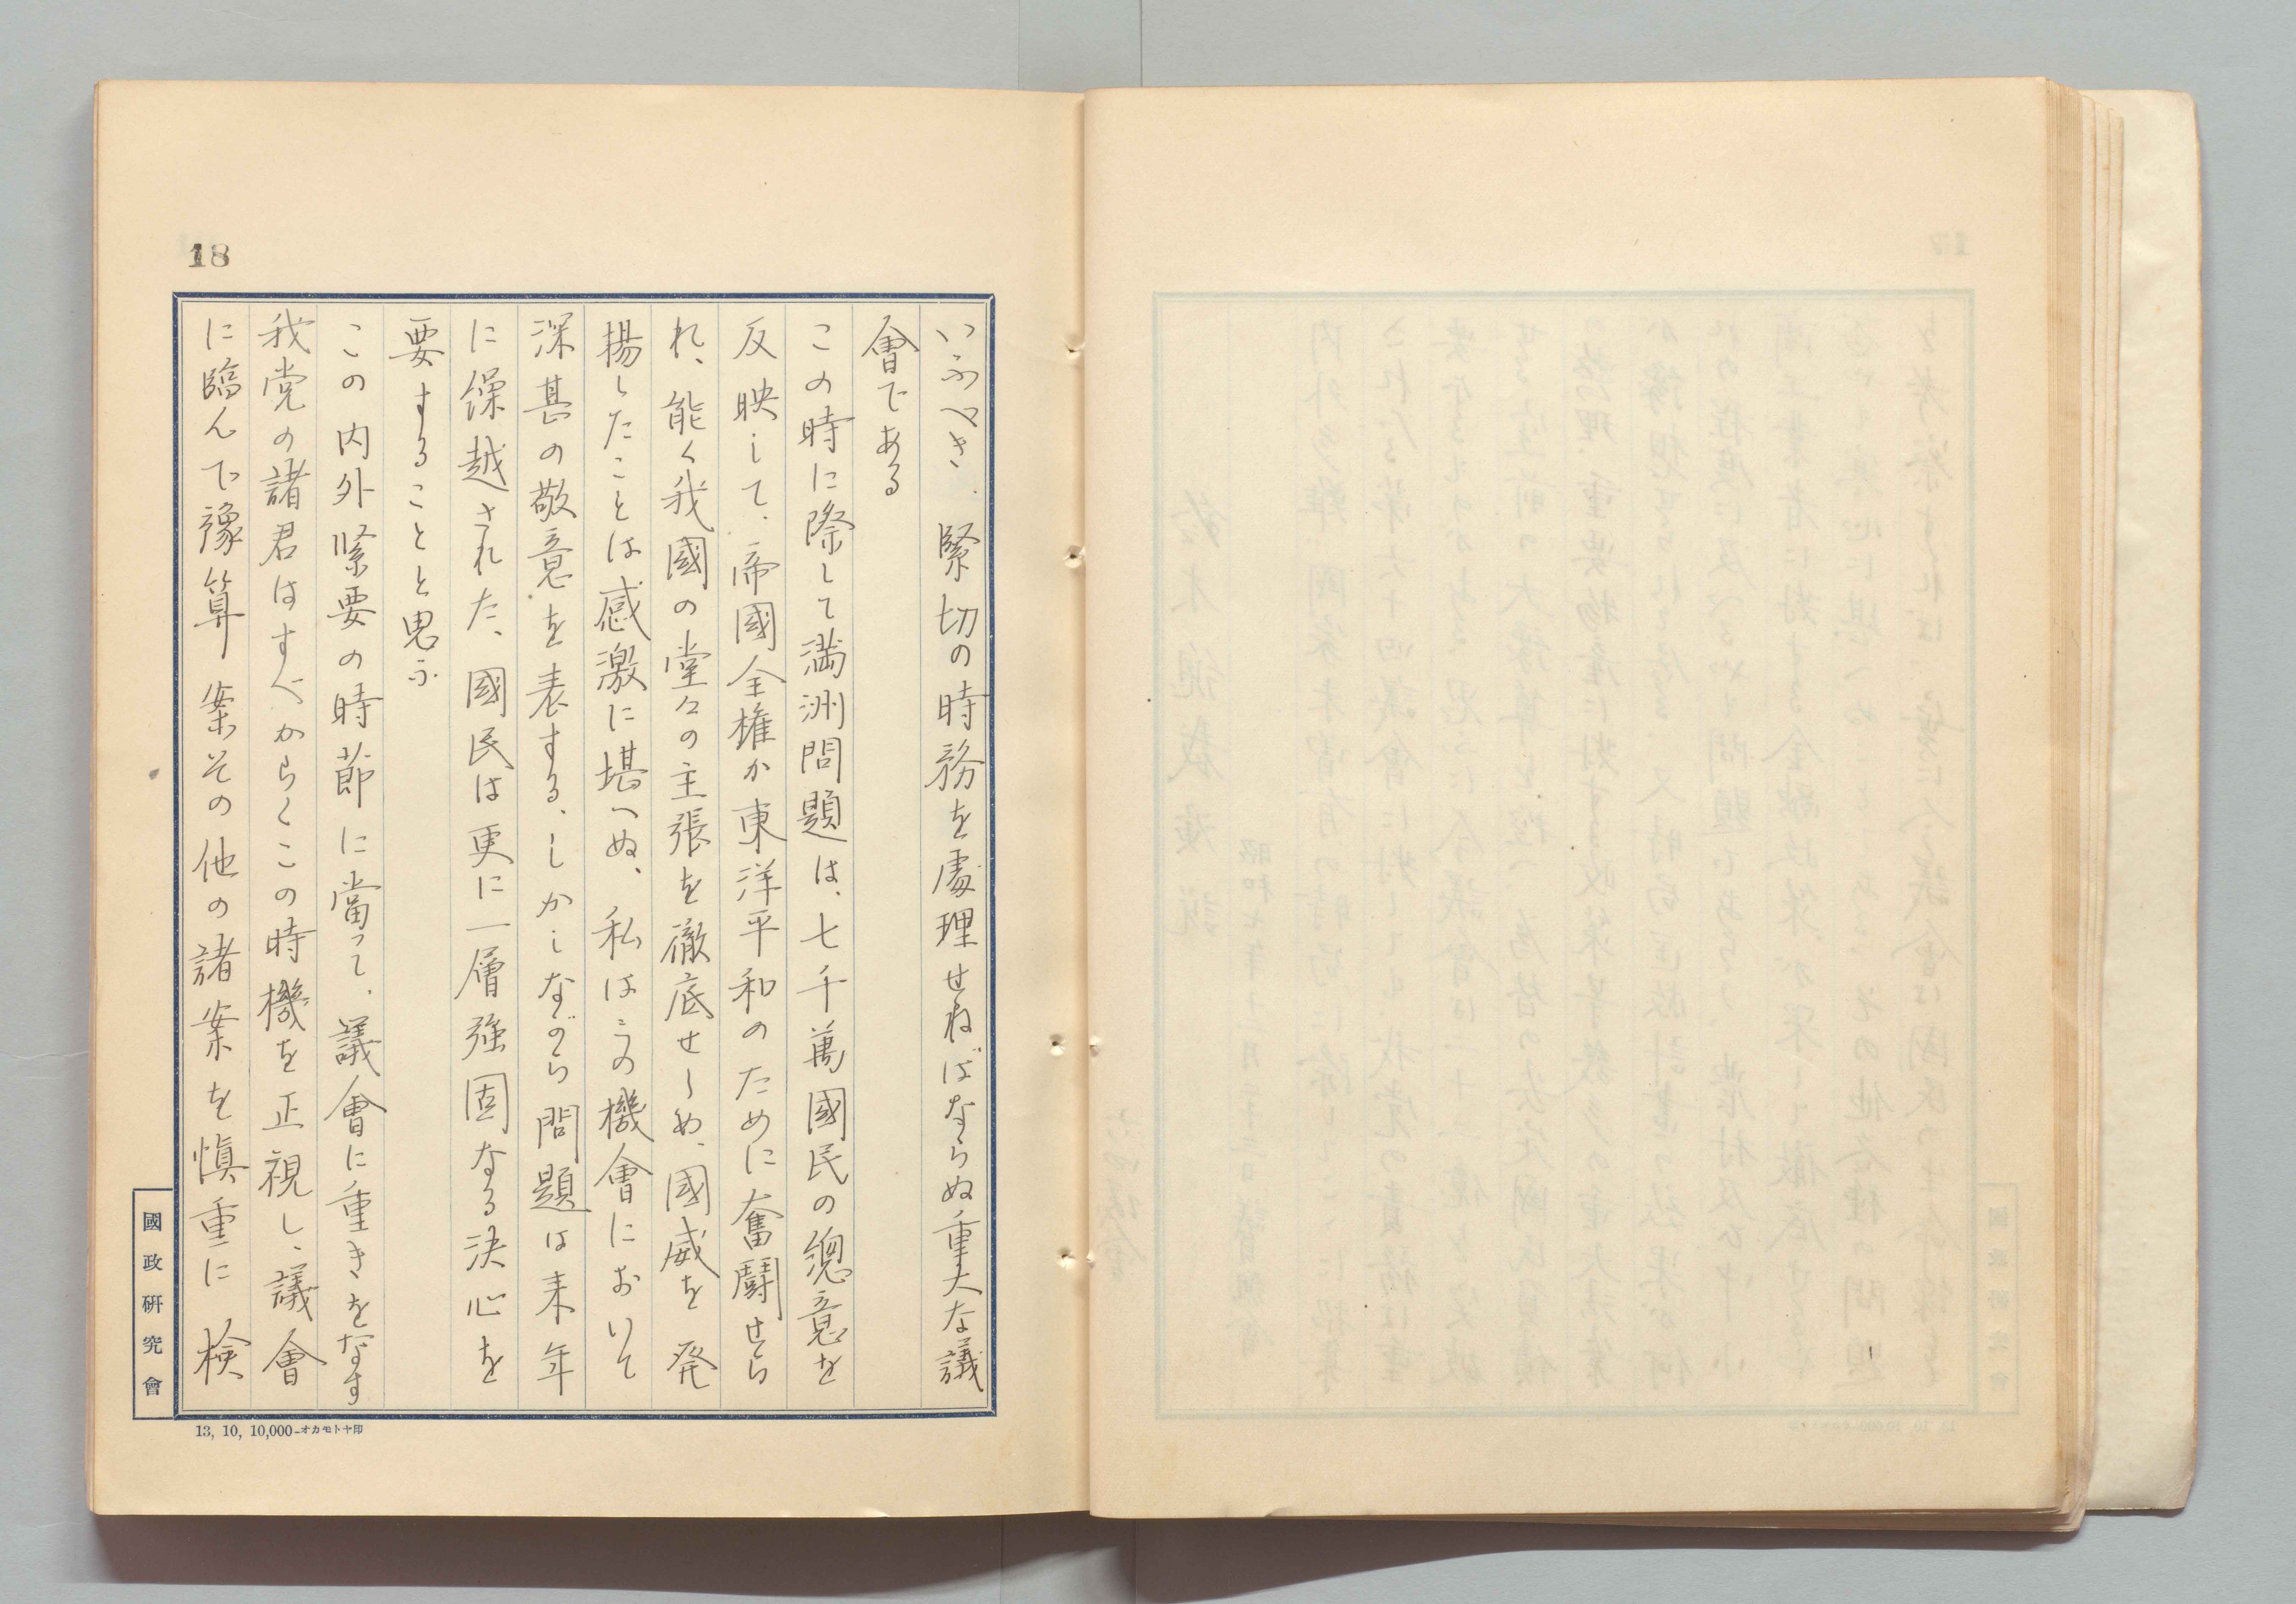 18
いふべき、緊切の時務を處理せねばならぬ重大な議
會である
この時に際して満洲問題は、七千萬國民の總意を
反映して、帝國全権か東洋平和のために奮闘せら
れ、能く我國の堂々の主張を徹底せしめ、國威を発
揚したことは感激に堪へぬ、私はこの機會において
深甚の敬意を表する、しかしながら問題は来年
に繰越された、國民は更に一層強固なる決心を
要することと思ふ
この内外緊要の時節に當って、議會に重きをなす
我党の諸君はすべからくこの時機を正視し、議會
に臨んで豫算案その他の諸案を慎重に検
國政研究會
13, 10, 10,000-オカモトヤ印